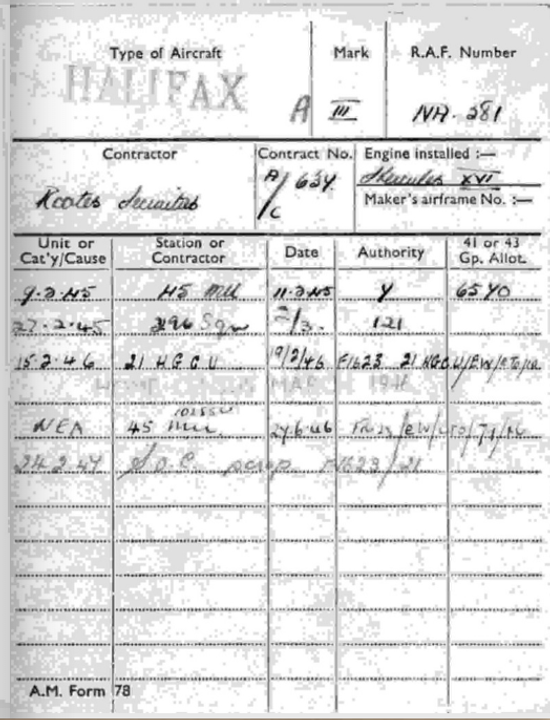 Type of Aircraft Mark R.A.F. Number
HALIFAX A III NA. 281
Contractor Contract No. Engine installed :—
Rootes Securities A/C 637 Hercules XVI
Maker's airframe No. :—
Unit or Cat'y/Cause Station or Contractor Date Authority 41 or 43 Gp. Allot.
9.2.45 45 MU 11.2.45 Y 6540
27.2.45 296 Sqn 2/3. 121
15.2.46 21 HGCU 19/2/46 F1623 21 HGCU/EW/
MAR 1946
NEA 45 MU 27.6.46
24.2.47 S.O.C. scrap
A.M. Form 78